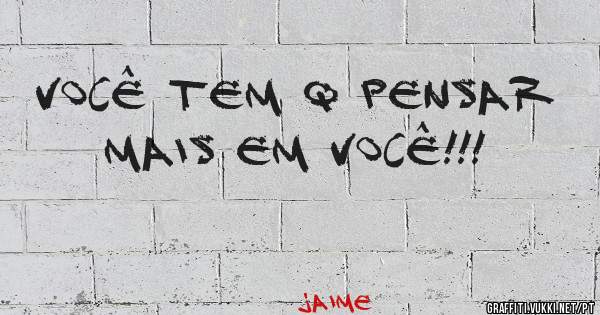 VOCÊ TEM Q PENSAR
MAIS EM VOCÊ!!!
JAIME
GRAFFITI.VUKKI.NET/PT